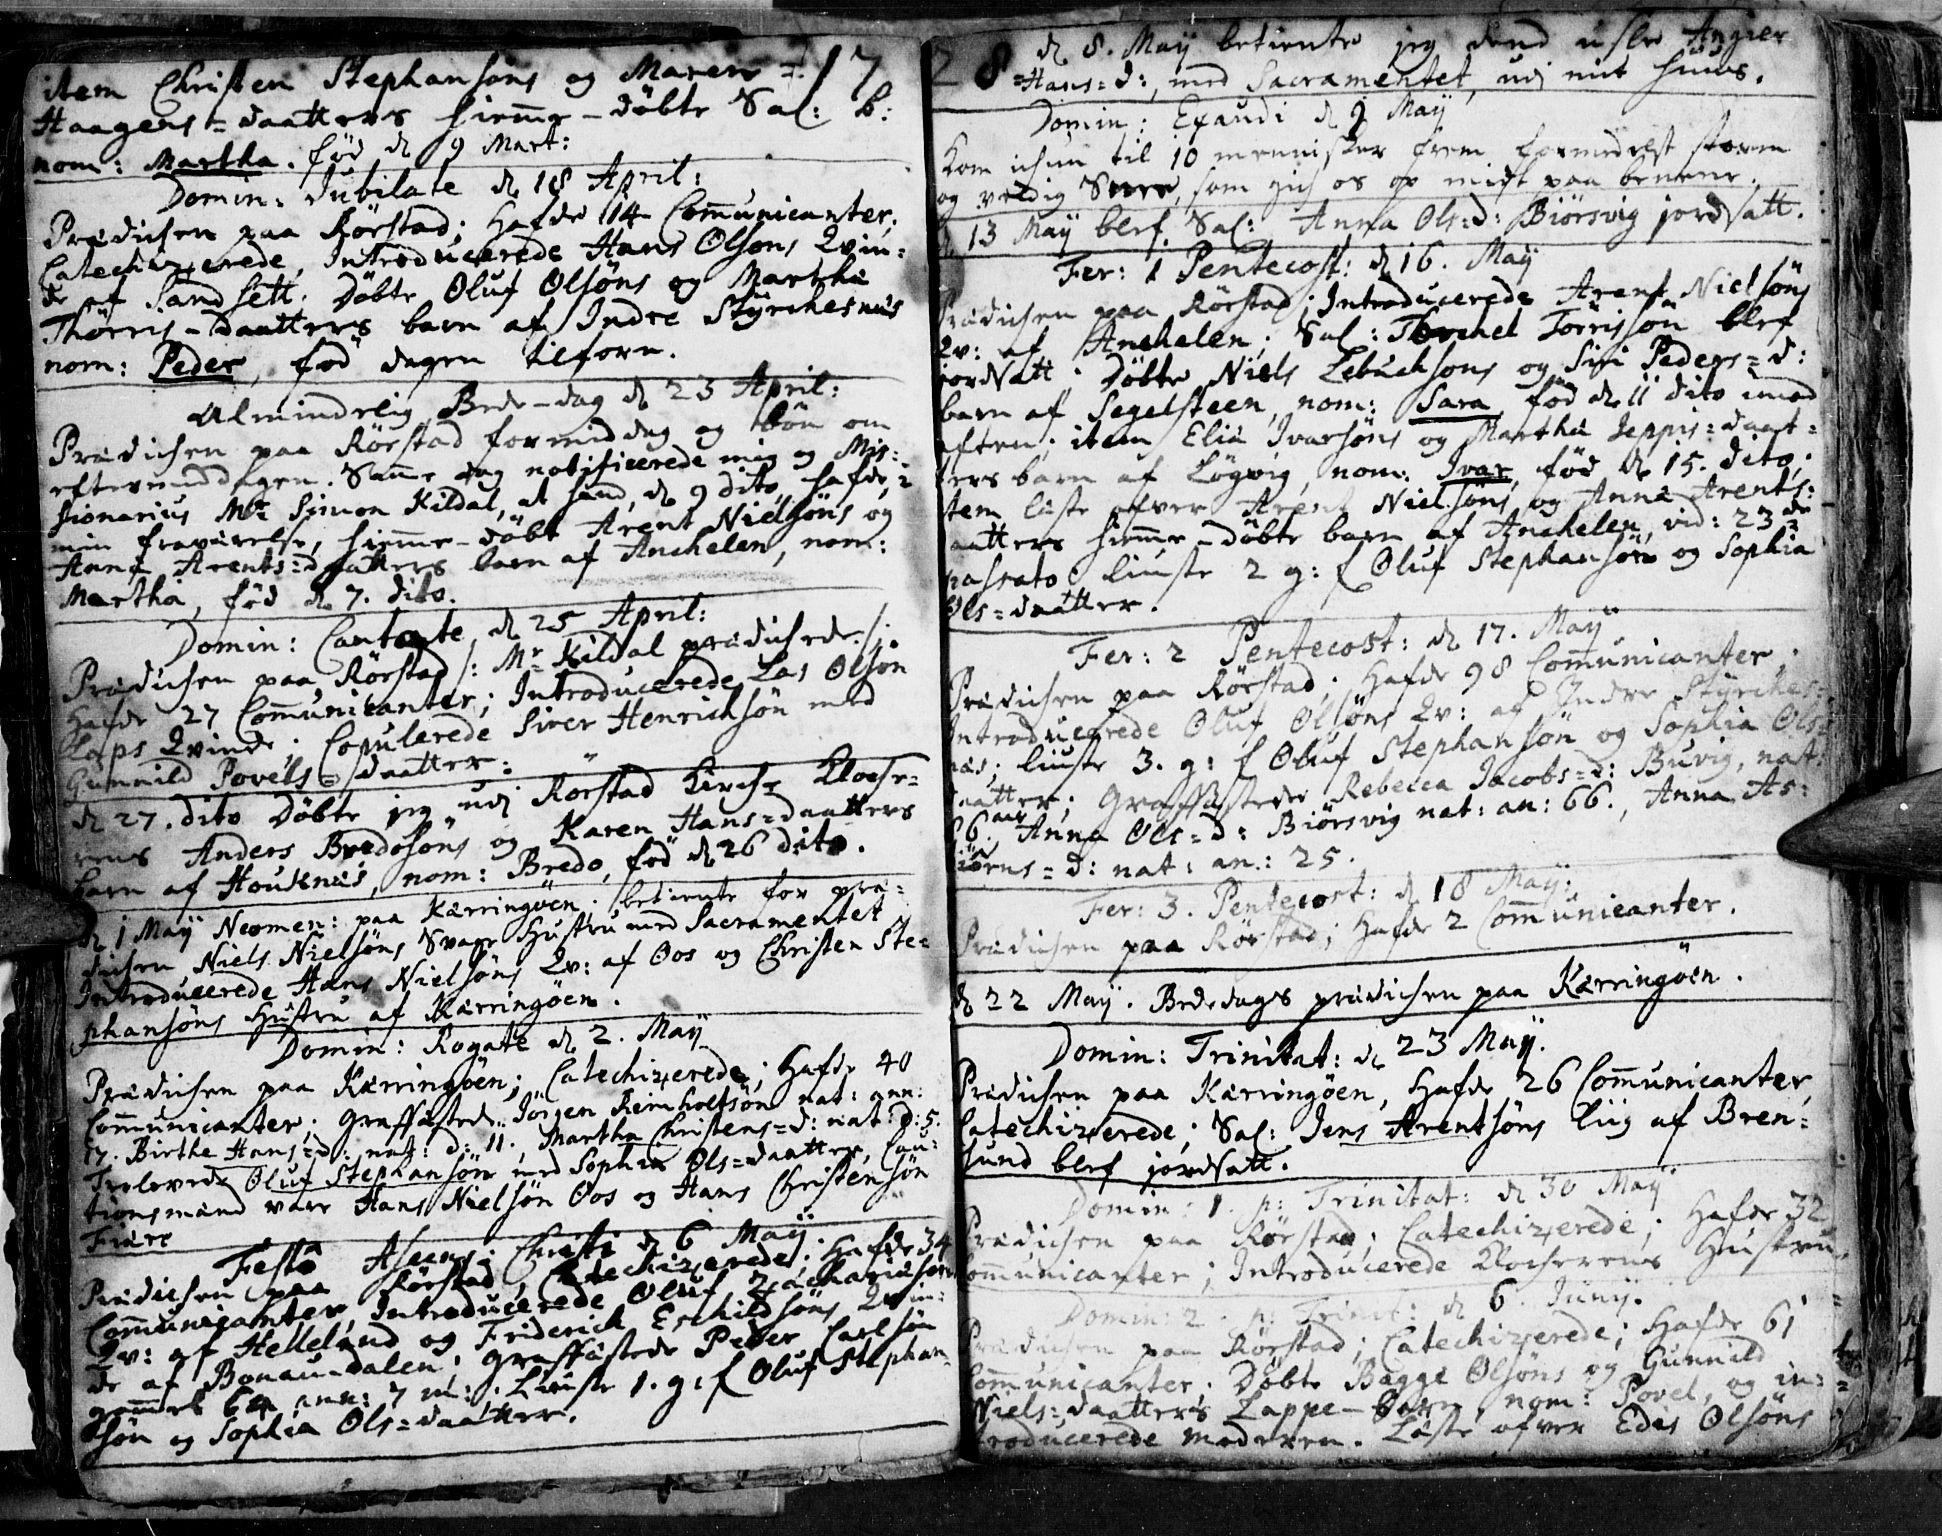 item Christen Stephansöns og Maren =
17
Haagens=daatters hiemme-döbte Sal: b:
nom: Martha. föd d 9 Mart:
Domin: Jubilate d 18 April:
Prædichen paa Rörstad; Hafde 14 Communicanter,
Catechizerede, Introducerede Hans Olsöns Qvin:
de af Sandsett. Döbte Oluf Olsöns og Martha
Thörris-daatters barn af Indre Styrchesnæs
nom: Peder, föd dagen tilforn.
Almindelig Bede-dag d 23 April:
Prædichen paa Rörstad formiddag og bön om
eftermiddagen. Samme dag notificerede mig og Mis:
sionarius Mr Simon Kildal, at hand, d 9 dito, hafde, i
min fraværelse, hiemme-döbt Arent Nielsöns og
Anna Arents=daatters barn af Anchelen, nom:
Martha, föd d 7. dito.
Domin: Cantate, d 25 April:
Prædichen paa Rörstad /: Mr Kildal prædichede :/.
Hafde 27 Communicanter; Introducerede Las Olsön
Laps Qvinde; Copulerede Siver Henrichsön med
Gunnild Povels=daatter:
d 27. dito Döbte jeg udj Rorstad Kirche Kloche=
rens Anders Bredosöns og Karen Hans=daatters
barn af Houknæs, nom: Bredo, föd d 26 dito.
d 1 May Neomen: paa Kærringöen. betiente for præ=
dichen Niels Nielsöns Svage Hustru med Sacramentet
Introducerede Hans Nielsöns Qv: af Oos og Christen Ste=
phansöns Hustru af Kærringöen.
Domin: Rogate d 2. May
Prædichen paa Kærringöen; Catechizerede; Hafde 40
Communicanter; Graffæstede Jörgen Reinholtsön nat: ann:
17. Birthe Hans=d: nat: d: 11. Martha Christens=d: nat: d: 5.
Trolovede Oluf Stephansön med Sophia Ols=daatter, Cau:
tionsmænd vare Hans Nielsön Oos og Hans Christensön
Fiære
Festo Ascens: Christi d 6 May.
Prædichen paa Rörstad, Catechizerede; Hafde 34
Communicanter, Introducerede Oluf Zachariæsöns
Qv: af Helleland og Friderich Eschildsöns Qvin:
de af Bonaudalen; Graffæstede Peder Carlsön
gammel 64 ann: 7 m:. Liuste 1. g: f Oluf Stephan-
sön og Sophia Ols=daatter.
28
d 8. May betiente jeg dend usle Angier
Hans=d:, med Sacramentet, udj mit huus.
Domin: Exaudi d 9 May
Kom ichun til 10 mennisker frem formedelst storm
og veldig Snee, som gich os op midt paa benene.
d 13 May blef Sal: Anna Ols=d: Biörsvig jordsatt.
Fer: 1 Pentecost: d 16. May
Prædichen paa Rörstad; Introducerede Arent Nielsöns
Qv: af Anchelen; Sal: Thorchel Törrissön blef
jordsatt. Döbte Niels Lebuchsöns og Siri Peders=d:
barn af Segelsteen, nom: Sara, föd d 11 dito imod
aften; item Eliæ Ivarsöns og Martha Jeppis=daat=
ters barn af Lögvig, nom: Ivar, föd d 15. dito; i
tem læste ofver Arent Nielsöns og Anna Arents:
daatters hiemme-döbte barn af Anchelen, vid: 23 de
passato; liuste 2 g: f Oluf Stephansön og Sophia
Ols=daatter.
Fer: 2 Pentecost: d 17. May
Prædichen paa Rörstad; Hafde 98 Communicanter;
Introducerede Oluf Olsöns Qv: af Indre Styrches=
næs; liuste 3. g: f Oluf Stephansön og Sophia Ols=
daatter; Graffæstede Rebecca Jacobs=d: Buvig, nat:
66. Anna Ols=d: Biörsvig nat: an: 66., Anna As:
biörns=d: nat: an.: 25.
Fer: 3. Pentecost: d 18 May:
Prædichen paa Rörstad; Hafde 2 Communicanter.
d 22 May. Bededags prædichen paa Kærringöen.
Domin: Trinitat: d 23 May.
Prædichen paa Kærringöen, Hafde 26 Communicanter,
Catechizerede; Sal: Jens Arentsöns liig af Bren=
sund blef jordsatt.
Domin: 1. p: Trinitat: d 30 May
Prædichen paa Rörstad; Catechizerede; Hafde 32
Communicanter; Introducerede Klocherens Hustru.
Domin: 2. p: Trinit: d 6. Junij.
Prædichen paa Rörstad; Catechizerede; Hafde 61
Communicanter. Döbte Bagge Olsöns og Gunnild
Niels=daatters Lappe-barn, nom: Povel, og in=
troducerede moderen. Læste ofver Edis Olsöns